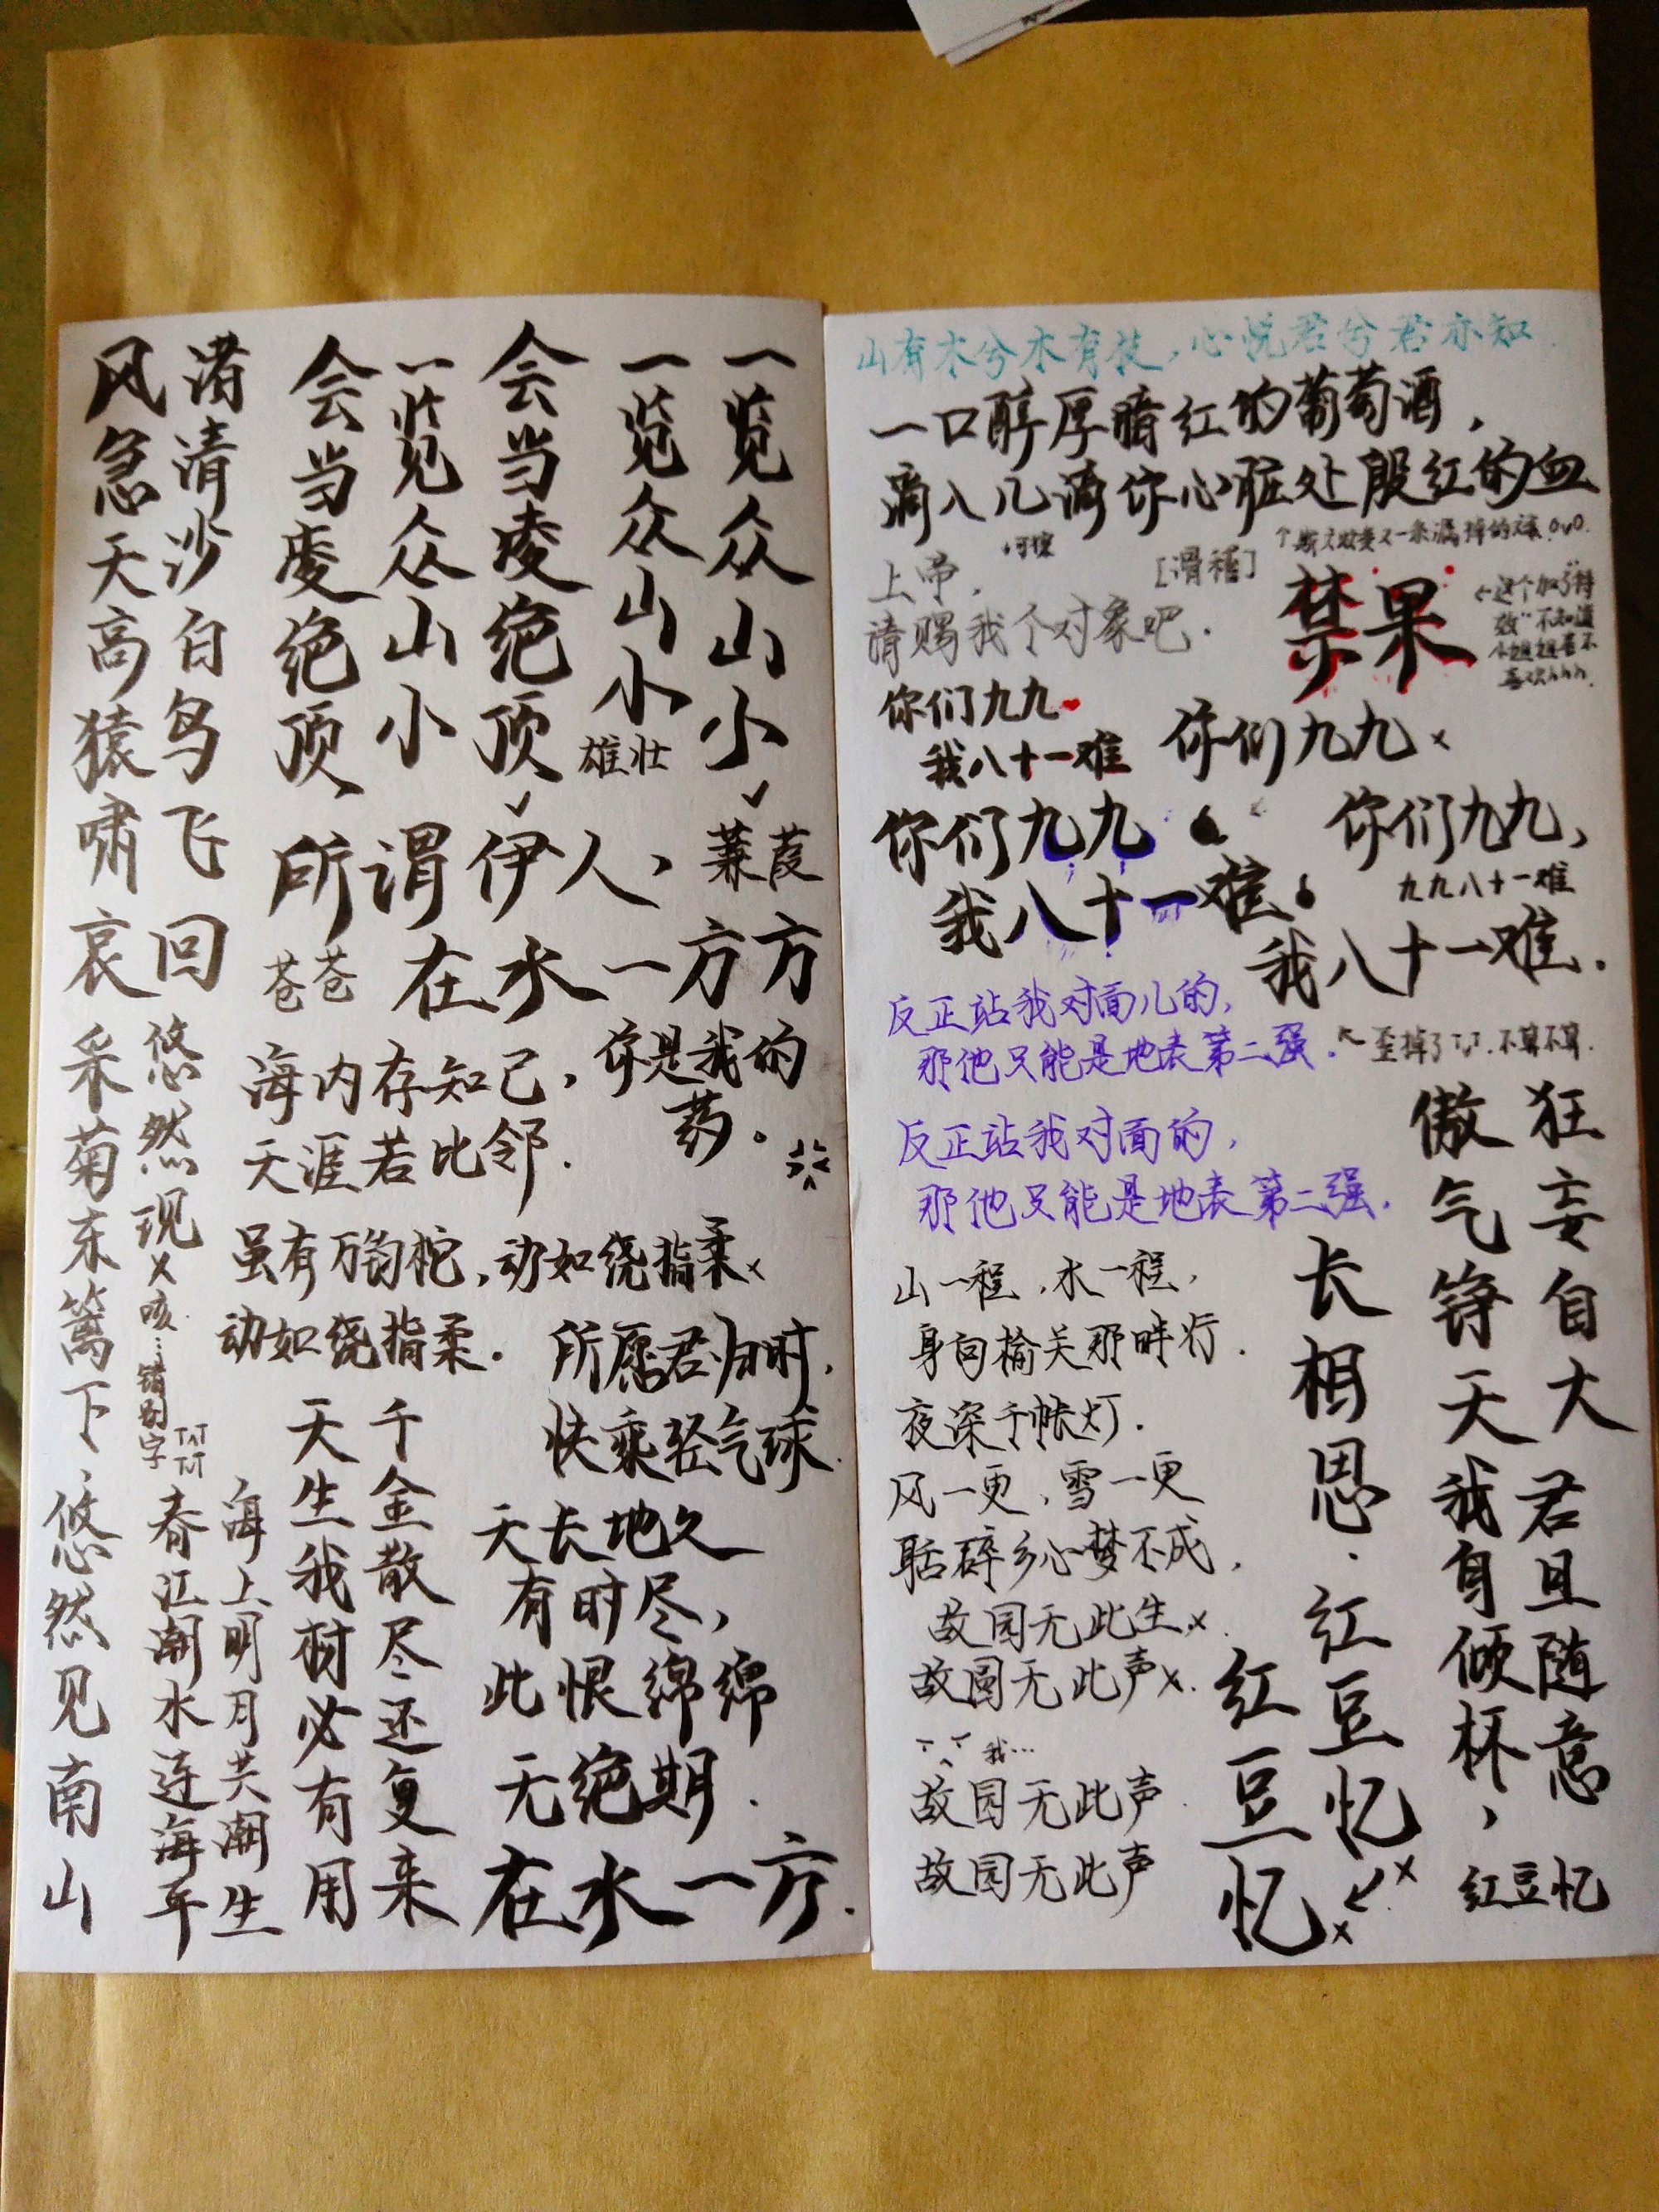 风急天高猿啸哀
渚清沙白鸟飞回
会当凌绝顶、
一览众山小
会当凌绝顶
一览众山小
雄壮
一览众山小
所谓伊人、
蒹葭
苍苍
在水一方方
海内存知己,
天涯若比邻.
你是我的
药.
虽有万钧柁,动如绕指柔x
动如绕指柔.
所愿君归时,
快乘轻气球.
采菊东篱下、
悠然现x
咳…错别字
TAT
悠然见南山
春江潮水连海平
海上明月共潮生
天生我材必有用
千金散尽还复来
天长地久
有时尽,
此恨绵绵
无绝期.
在水一方.
山有木兮木有枝,心悦君兮君亦知.
一口醇厚暗红的葡萄酒,
滴入几滴你心脏处殷红的血
上帝,
[滑稽]
请赐我个对象吧.
禁果
←这个加了特
效"不知道
小姐姐喜不
喜欢hhh.
你们九九
我八十一难
你们九九x
你们九九
我八十一难
你们九九,
九九八十一难
我八十一难.
反正站我对面儿的,
那他只能是地表第二强.
←歪掉了TvT.不算不算.
反正站我对面的,
那他只能是地表第二强.
山一程,水一程,
身向榆关那畔行.
夜深千帐灯.
风一更,雪一更
聒碎乡心梦不成,
故园无此生x.
故园无此声x.
我…
故园无此声.
故园无此声
狂妄自大
傲气铮天
长相思.红豆忆
x
红豆忆x
君且随意
我自倾杯,
红豆忆